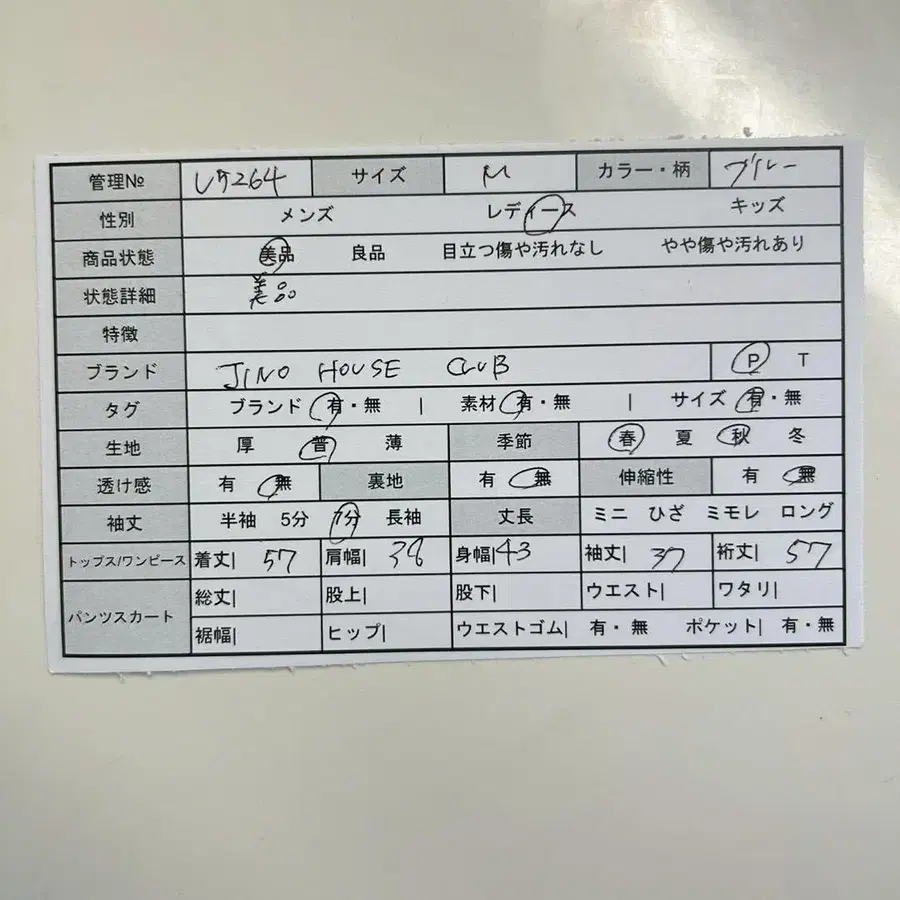 管理№ いタ264 サイズ M カラー・柄 ブルー
性別 メンズ レディース キッズ
商品状態 美品 良品 目立つ傷や汚れなし やや傷や汚れあり
状態詳細 美品
特徴
ブランド JINO HOUSE CLUB P T
タグ ブランド 有・無 | 素材 有・無 | サイズ 有・無
生地 厚 普 薄 季節 春 夏 秋 冬
透け感 有 無 裏地 有 無 伸縮性 有 無
袖丈 半袖 5分 7分 長袖 丈長 ミニ ひざ ミモレ ロング
トップス/ワンピース 着丈| 57 肩幅| 38 身幅| 43 袖丈| 37 裄丈| 57
パンツスカート 総丈| 股上| 股下| ウエスト| ワタリ|
裾幅| ヒップ| ウエストゴム| 有・無 ポケット| 有・無